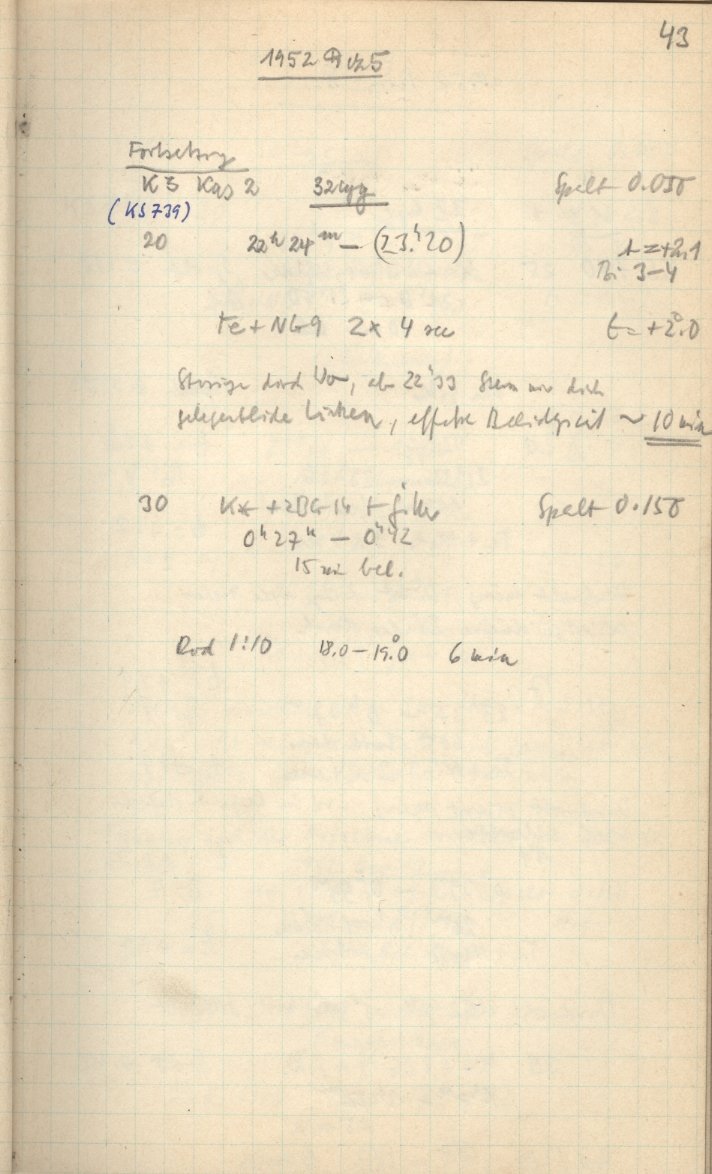 43
1952 Dez 5
Fortsetzung
K3 Kas 2 32 Cyg Spalt 0.050
(KS739)
20 22ʰ24ᵐ — (23ʰ.20) t = +2.1
Bi 3–4
Fe+NG9 2× 4 sec t = +2°.0
Störung durch ab 22ʰ33 Stern nur durch
gelegentliche Lücken, effektive ~ 10 min
30 +2BG14 + Spalt 0.150
0ʰ27ᵐ — 0ʰ42
15 min bel.
Rod 1:10 18.0–19°.0 6 min